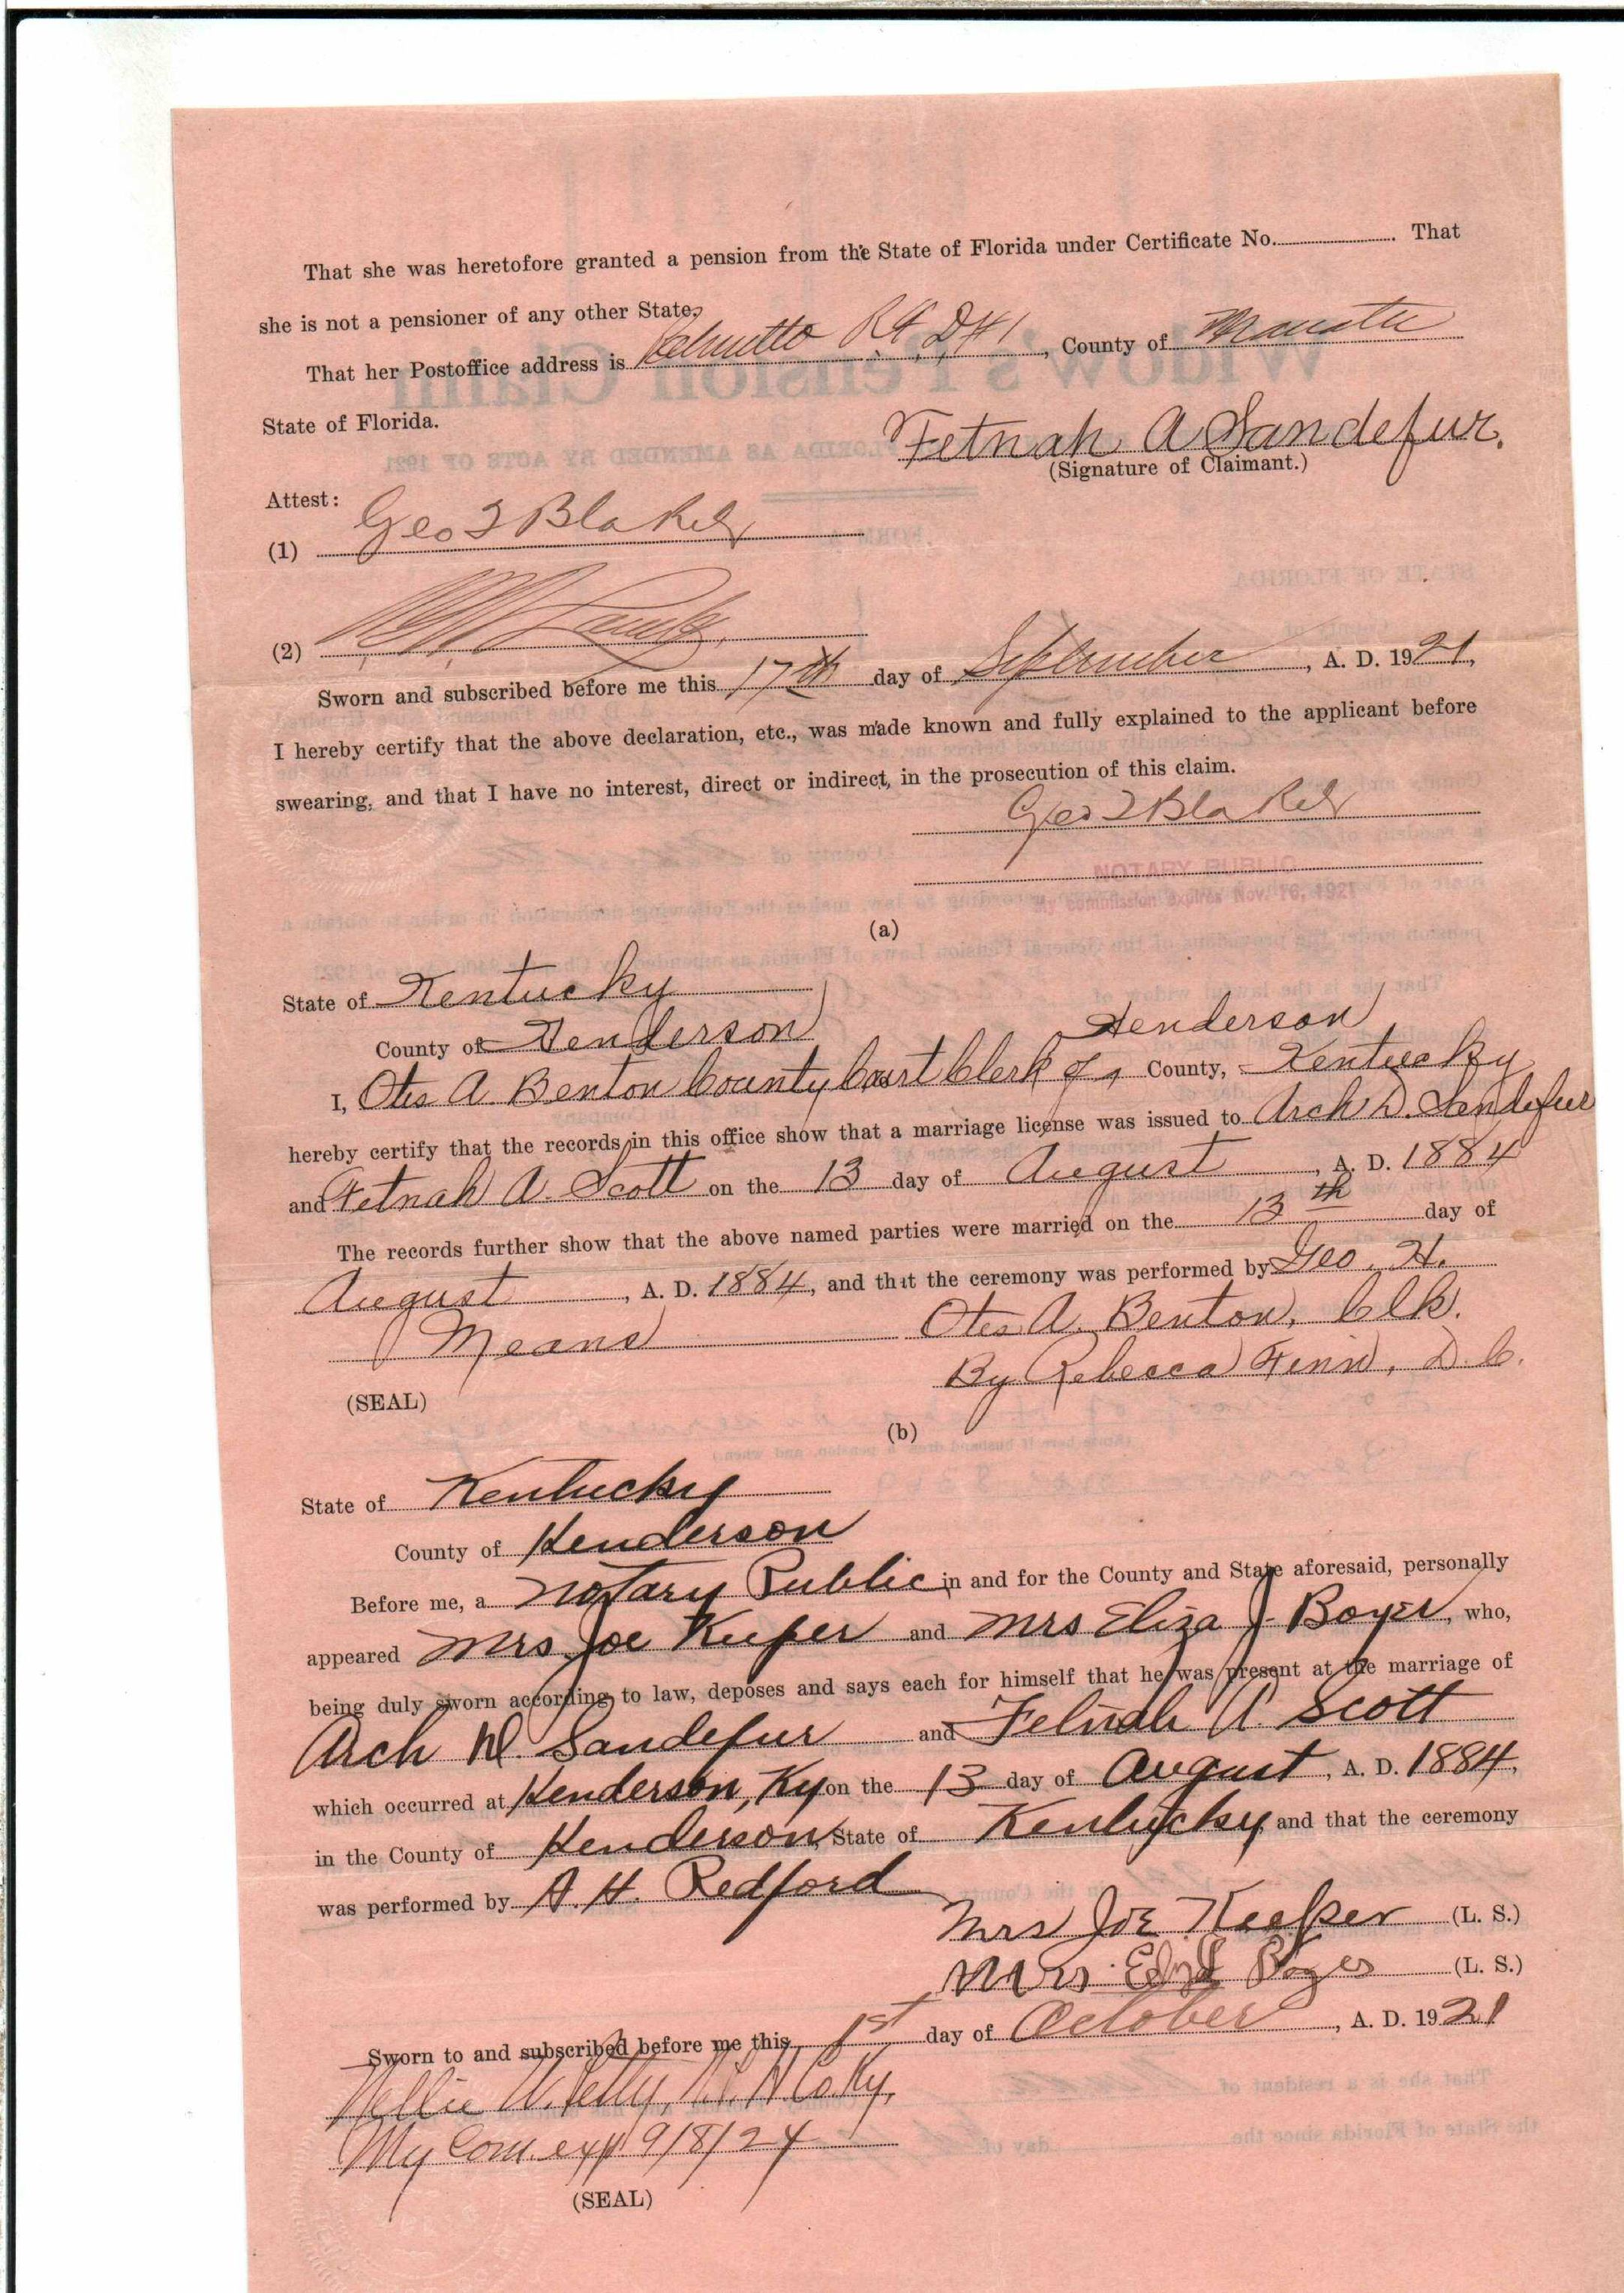 That she was heretofore granted a pension from the State of Florida under Certificate No. That
she is not a pensioner of any other State.
That her Postoffice address is Palmetto R.F.D #1, County of Manatee
State of Florida.
Fetnah A Sandefur.
(Signature of Claimant.)
Attest:
(1) Geo Blake
(2)
Sworn and subscribed before me this 17th day of September, A. D. 1921,
I hereby certify that the above declaration, etc., was made known and fully explained to the applicant before
swearing, and that I have no interest, direct or indirect, in the prosecution of this claim.
Geo Blake
NOTARY PUBLIC
My commission expires Nov. 16, 1921
(a)
State of Kentucky
County of Henderson
Henderson
I, Otis A. Benton County Court Clerk of, County, Kentucky
hereby certify that the records in this office show that a marriage license was issued to Arch D. Sandefur
and Fetnah A. Scott on the 13 day of August, A. D. 1884
The records further show that the above named parties were married on the 13th day of
August, A. D. 1884, and that the ceremony was performed by Geo. H.
Means
Otis A. Benton, Clk.
By Rebecca Finn, D. C.
(SEAL)
(b)
State of Kentucky
County of Henderson
Before me, a Notary Public in and for the County and State aforesaid, personally
appeared Mrs Joe Kuper and Mrs Eliza J. Boyer, who,
being duly sworn according to law, deposes and says each for himself that he was present at the marriage of
Arch D. Sandefur and Fetnah A. Scott
which occurred at Henderson, Ky on the 13 day of August, A. D. 1884,
in the County of Henderson, State of Kentucky, and that the ceremony
was performed by A. H. Redford
Mrs Joe Keeper (L. S.)
Mrs. Boyer (L. S.)
Sworn to and subscribed before me this 1st day of October, A. D. 1921
Nellie W. Co Ky,
My Com. exp 9/8/24
(SEAL)